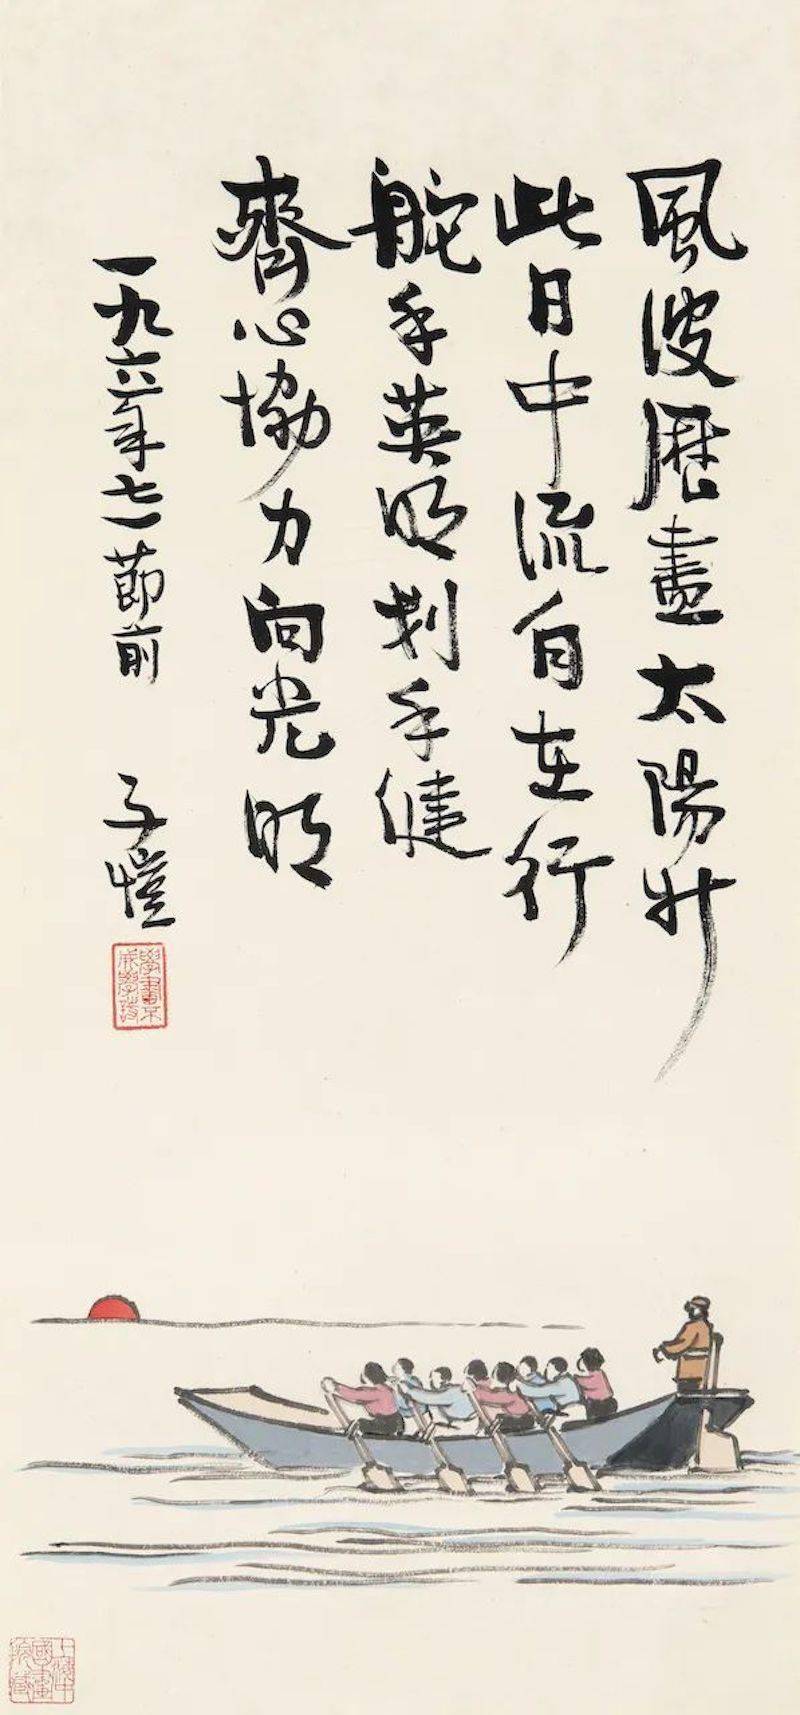 風波歷盡太陽升
此日中流自在行
舵手英明划手健
齊心協力向光明
一九六一年七一節前 子愷
上海中國畫院藏